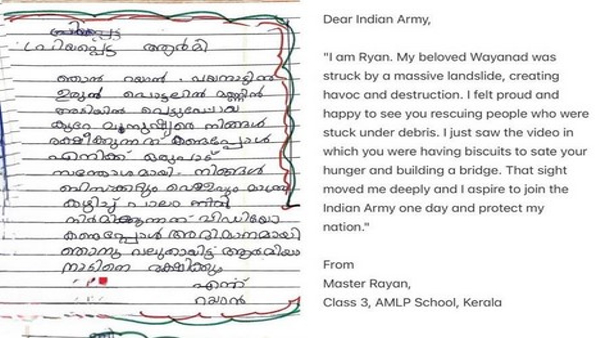 പ്രിയപ്പെട്ട ആർമി
ഞാൻ റയാൻ. വയനാട്ടിൽ
ഉരുൾ പൊട്ടലിൽ മണ്ണിൻ
അടിയിൽ പെട്ടുപോയ
കുറേ മനുഷ്യരെ നിങ്ങൾ
രക്ഷിക്കുന്നത് കണ്ടപ്പോൾ
എനിക്ക് ഒരുപാട്
സന്തോഷമായി. നിങ്ങൾ
ബിസ്ക്കറ്റും വെള്ളവും
കഴിച്ച് പാലം
നിർമിക്കുന്നത് വിഡിയോ
കണ്ടപ്പോൾ അഭിമാനമായി
ഞാനു വലുതായിട്ട്
നാടിനെ രക്ഷിക്കും
എന്ന്
റയാൻ
Dear Indian Army,
"I am Ryan. My beloved Wayanad was
struck by a massive landslide, creating
havoc and destruction. I felt proud and
happy to see you rescuing people who were
stuck under debris. I just saw the video in
which you were having biscuits to sate your
hunger and building a bridge. That sight
moved me deeply and I aspire to join the
Indian Army one day and protect my
nation."
From
Master Rayan,
Class 3, AMLP School, Kerala